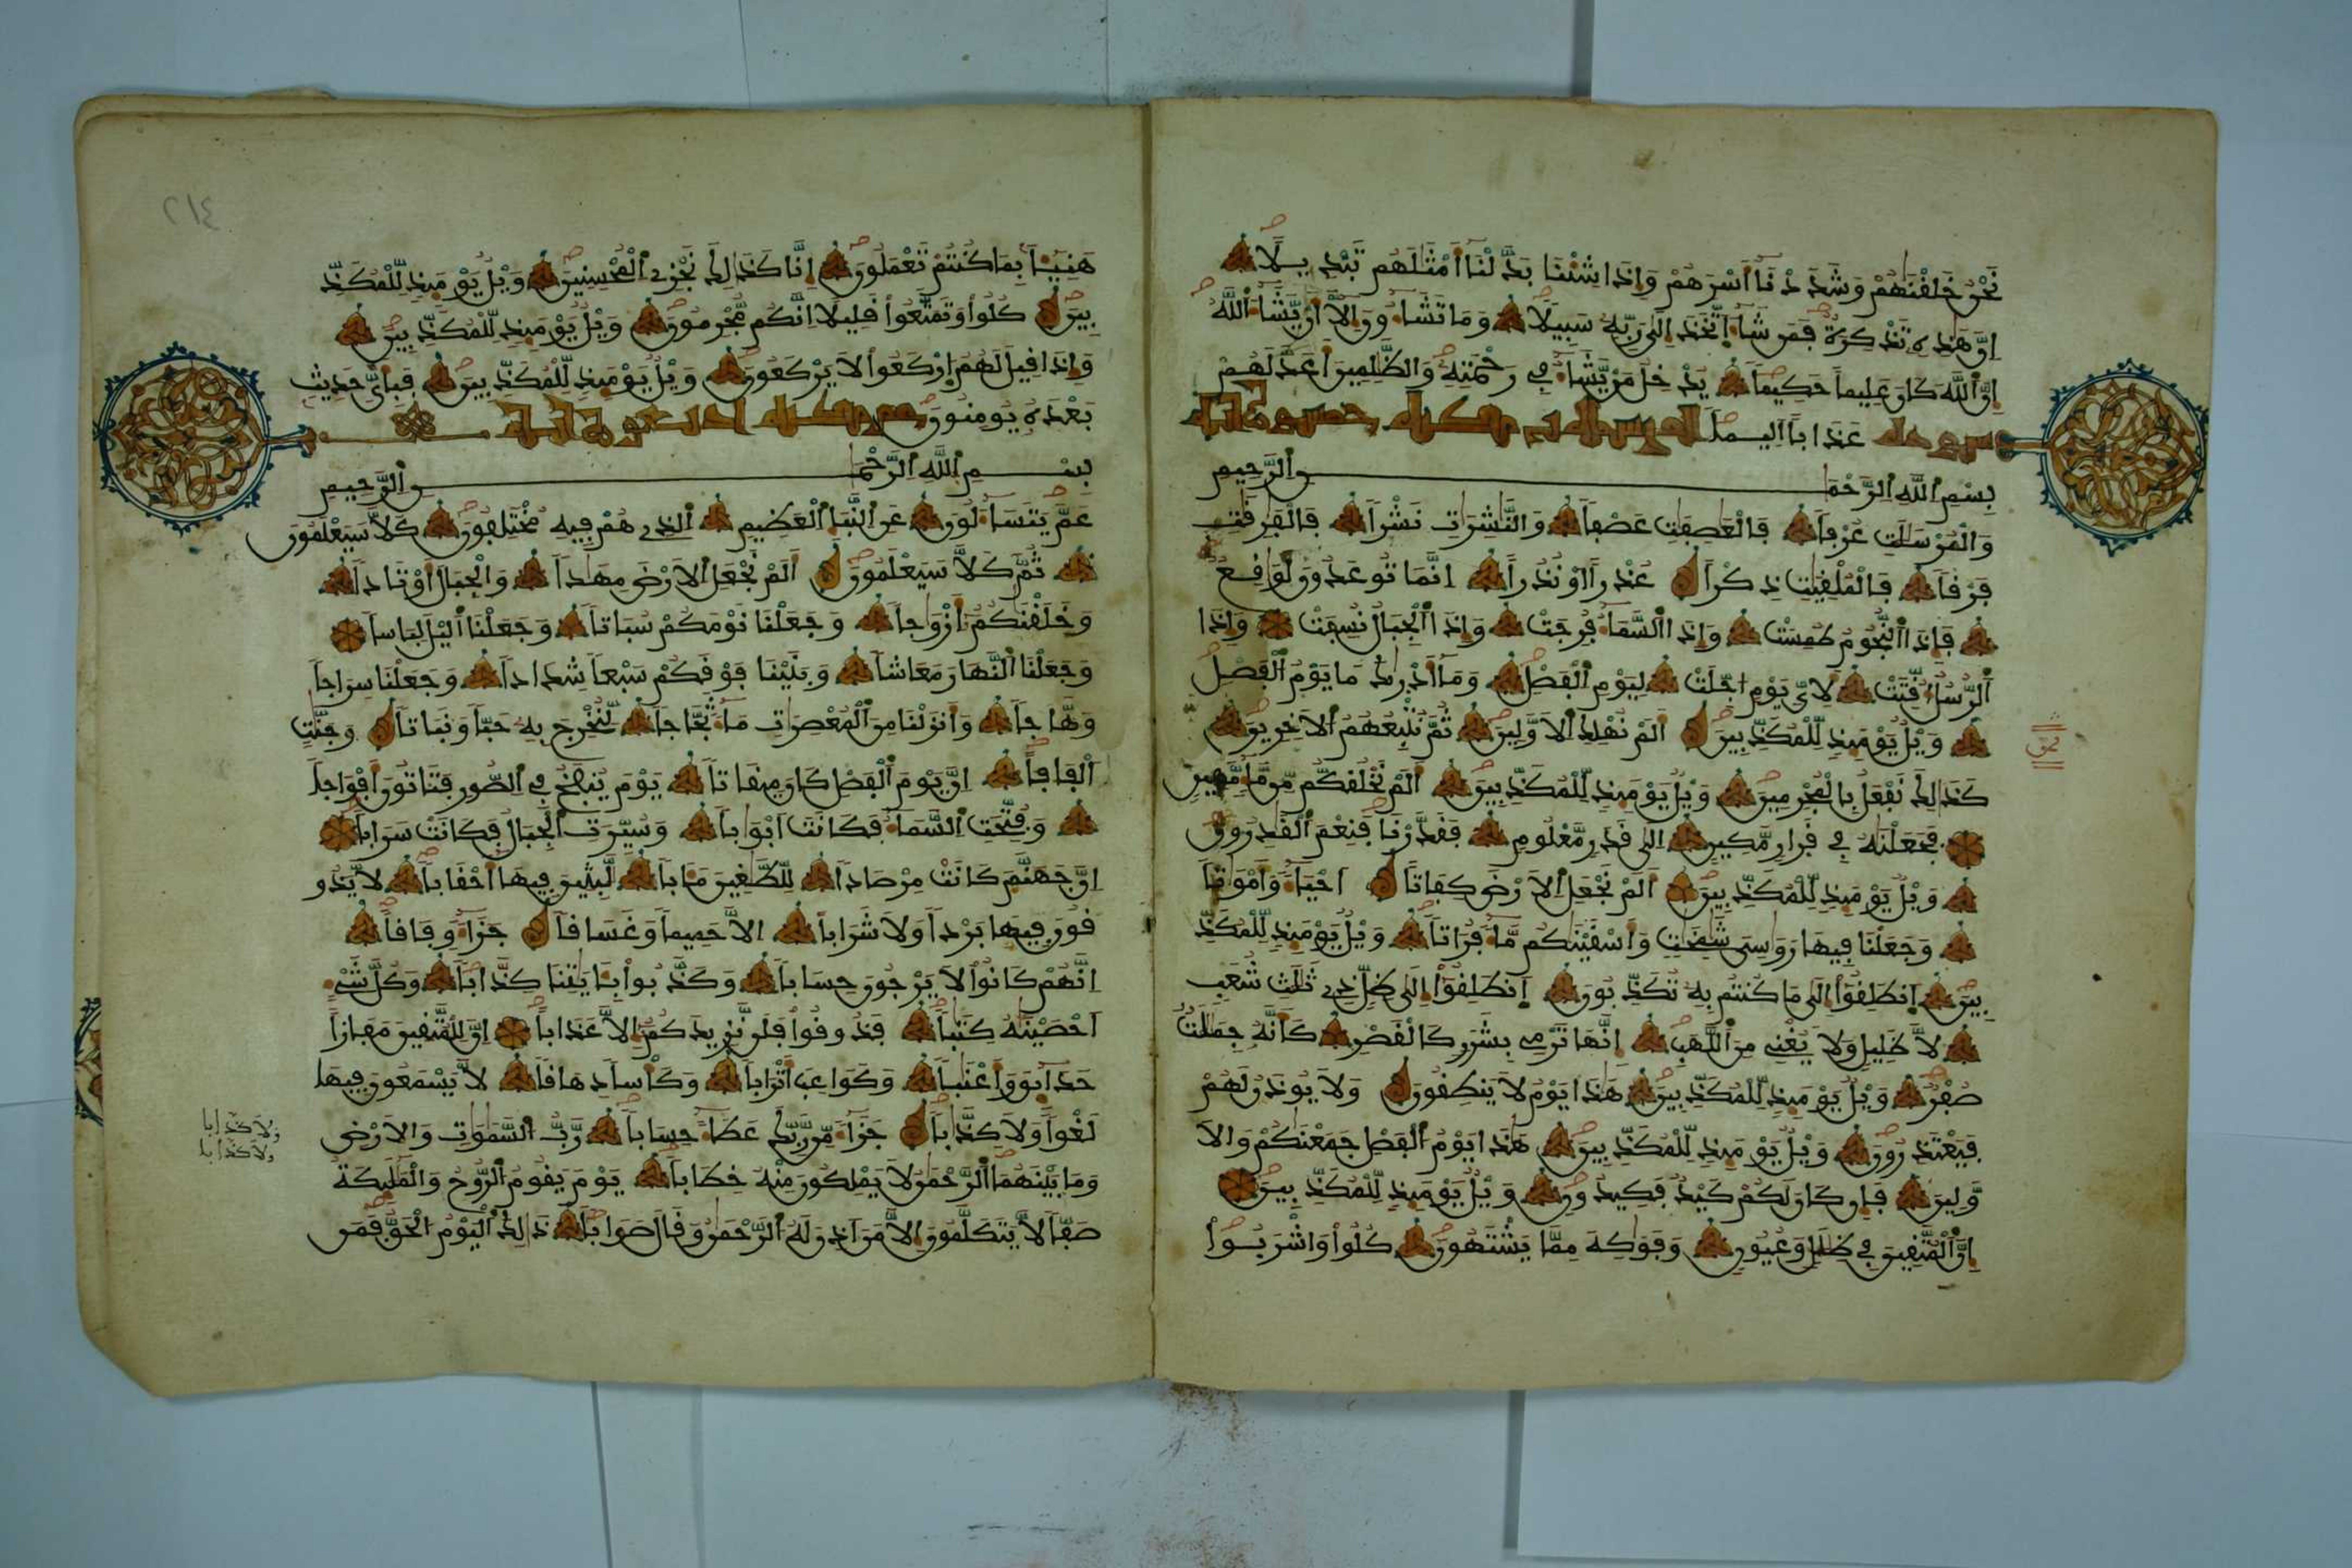 نحن خلقنهم وشددنا أسرهم وإذا شئنا بدلنا أمثلهم تبديلا
إن هذه تذكرة فمن شاء اتخذ إلى ربه سبيلا وما تشاءون إلا أن يشاء الله
إن الله كان عليما حكيما يدخل من يشاء في رحمته والظلمين أعد لهم
عذابا أليما سورة المرسلت مكية خمسون آية
بسم الله الرحمن الرحيم
والمرسلت عرفا فالعصفت عصفا والنشرت نشرا فالفرقت
فرقا فالملقيت ذكرا عذرا أو نذرا إنما توعدون لواقع
فإذا النجوم طمست وإذا السماء فرجت وإذا الجبال نسفت وإذا
الرسل أقتت لأي يوم أجلت ليوم الفصل وما أدريك ما يوم الفصل
ويل يومئذ للمكذبين ألم نهلك الأولين ثم نتبعهم الأخرين
كذلك نفعل بالمجرمين ويل يومئذ للمكذبين ألم نخلقكم من ماء مهين
فجعلنه في قرار مكين إلى قدر معلوم فقدرنا فنعم القدرون
ويل يومئذ للمكذبين ألم نجعل الأرض كفاتا أحياء وأموتا
وجعلنا فيها روسي شمخت وأسقينكم ماء فراتا ويل يومئذ للمكذ
بين انطلقوا إلى ما كنتم به تكذبون انطلقوا إلى ظل ذي ثلث شعب
لا ظليل ولا يغني من اللهب إنها ترمي بشرر كالقصر كأنه جملت
صفر ويل يومئذ للمكذبين هذا يوم لا ينطقون ولا يوذن لهم
فيعتذرون ويل يومئذ للمكذبين هذا يوم الفصل جمعنكم والا
ولين فإن كان لكم كيد فكيدون ويل يومئذ للمكذبين
إن المتقين في ظلل وعيون وفوكه مما يشتهون كلوا واشربوا
٢١٤
هنيئا بما كنتم تعملون إنا كذلك نجزي المحسنين ويل يومئذ للمكذ
بين كلوا وتمتعوا قليلا إنكم مجرمون ويل يومئذ للمكذبين
وإذا قيل لهم اركعوا لا يركعون ويل يومئذ للمكذبين فبأي حديث
بعده يومنون
بسم الله الرحمن الرحيم
عم يتساءلون عن النبإ العظيم الذي هم فيه مختلفون كلا سيعلمون
ثم كلا سيعلمون ألم نجعل الأرض مهدا والجبال أوتادا
وخلقنكم أزوجا وجعلنا نومكم سباتا وجعلنا اليل لباسا
وجعلنا النهار معاشا وبنينا فوقكم سبعا شدادا وجعلنا سراجا
وهاجا وأنزلنا من المعصرت ماء ثجاجا لنخرج به حبا ونباتا وجنت
ألفافا إن يوم الفصل كان ميقاتا يوم ينفخ في الصور فتاتون أفواجا
وفتحت السماء فكانت أبوابا وسيرت الجبال فكانت سرابا
إن جهنم كانت مرصادا للطغين مئابا لبثين فيها أحقابا لا يذو
قون فيها بردا ولا شرابا إلا حميما وغساقا جزاء وفاقا
إنهم كانوا لا يرجون حسابا وكذبوا بئايتنا كذابا وكل شيء
أحصينه كتبا فذوقوا فلن نزيدكم إلا عذابا إن للمتقين مفازا
حدائق وأعنبا وكواعب أترابا وكأسا دهاقا لا يسمعون فيها
لغوا ولا كذابا جزاء من ربك عطاء حسابا رب السموت والأرض
وما بينهما الرحمن لا يملكون منه خطابا يوم يقوم الروح والمليكة
صفا لا يتكلمون إلا من أذن له الرحمن وقال صوابا ذلك اليوم الحق فمن
ولا كذابا
ولا كذابا